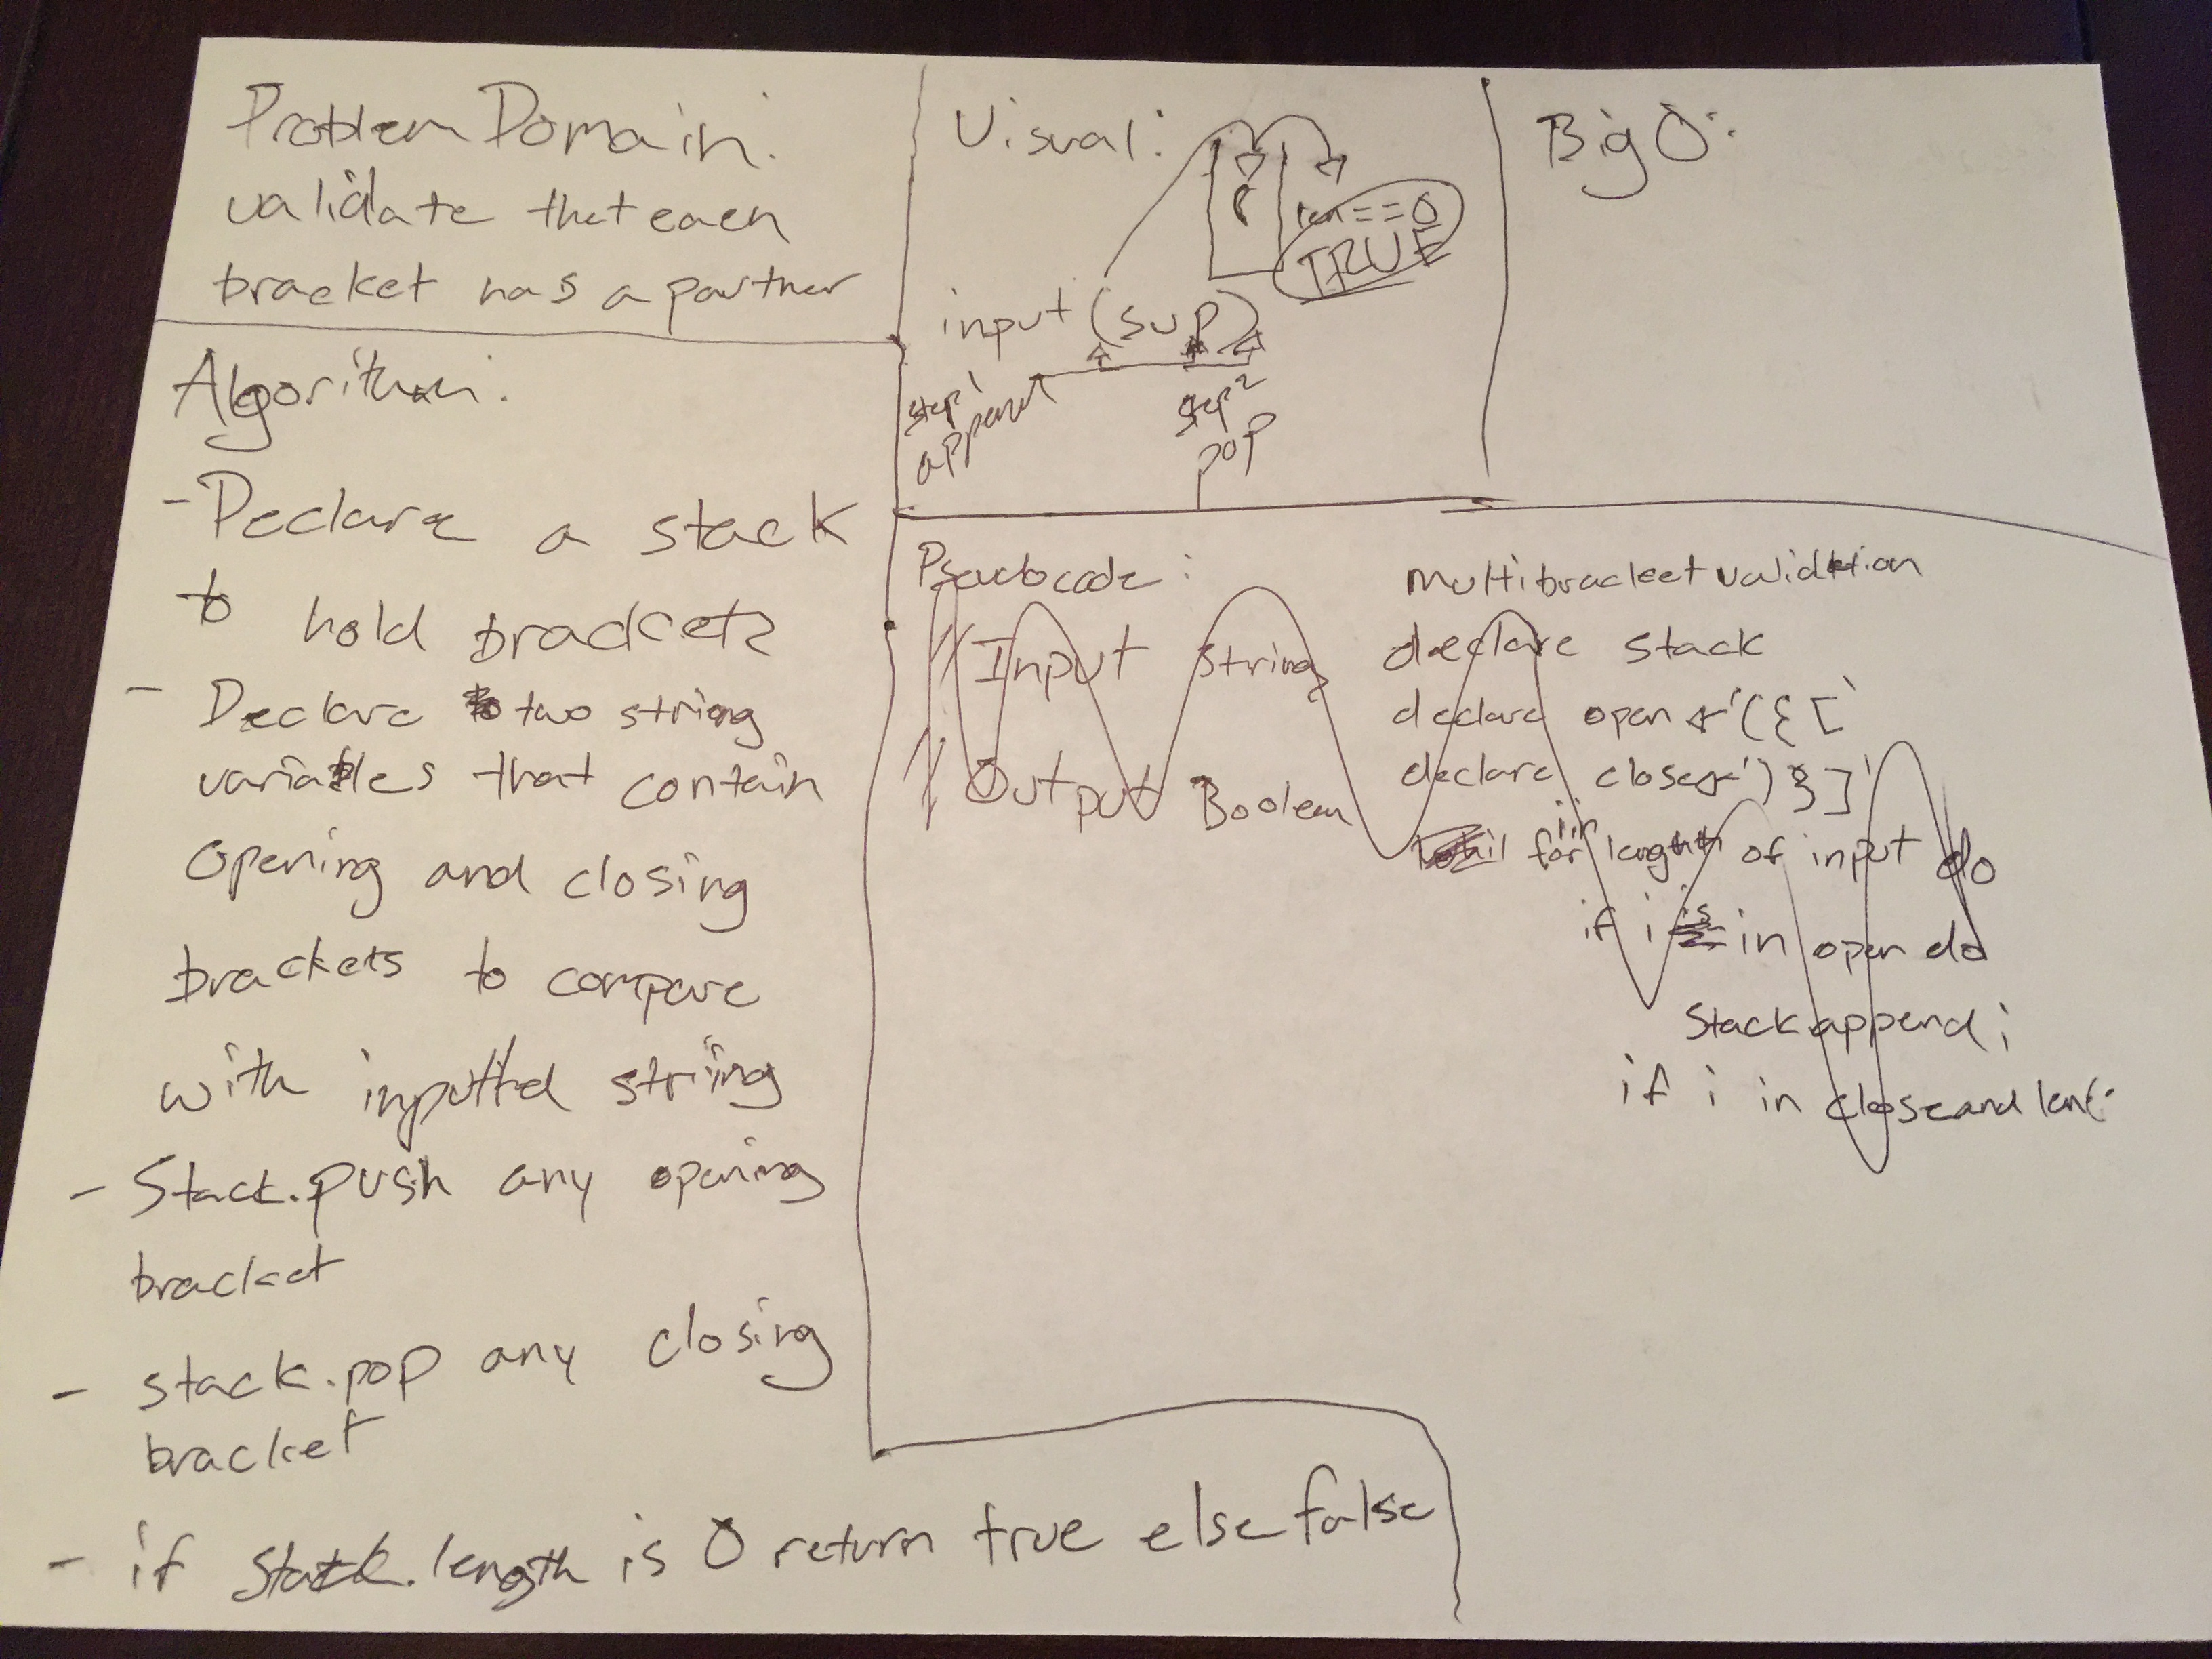 Problem Domain:
validate that each
bracket has a partner
Algorithm:
- Declare a stack
to hold brackets
- Declare two string
variables that contain
opening and closing
brackets to compare
with inputted string
- Stack.push any opening
bracket
- stack.pop any closing
bracket
- if stack.length is 0 return true else false
Visual:
len==0
TRUE
input (sup)
step 1
append
step 2
pop
Big O:
Pseudocode:
// Input string
// Output Boolean
multibracketvalidation
declare stack
declare open '({['
declare close ')}]'
for i in length of input do
if i in open do
stack append i
if i in close and len(